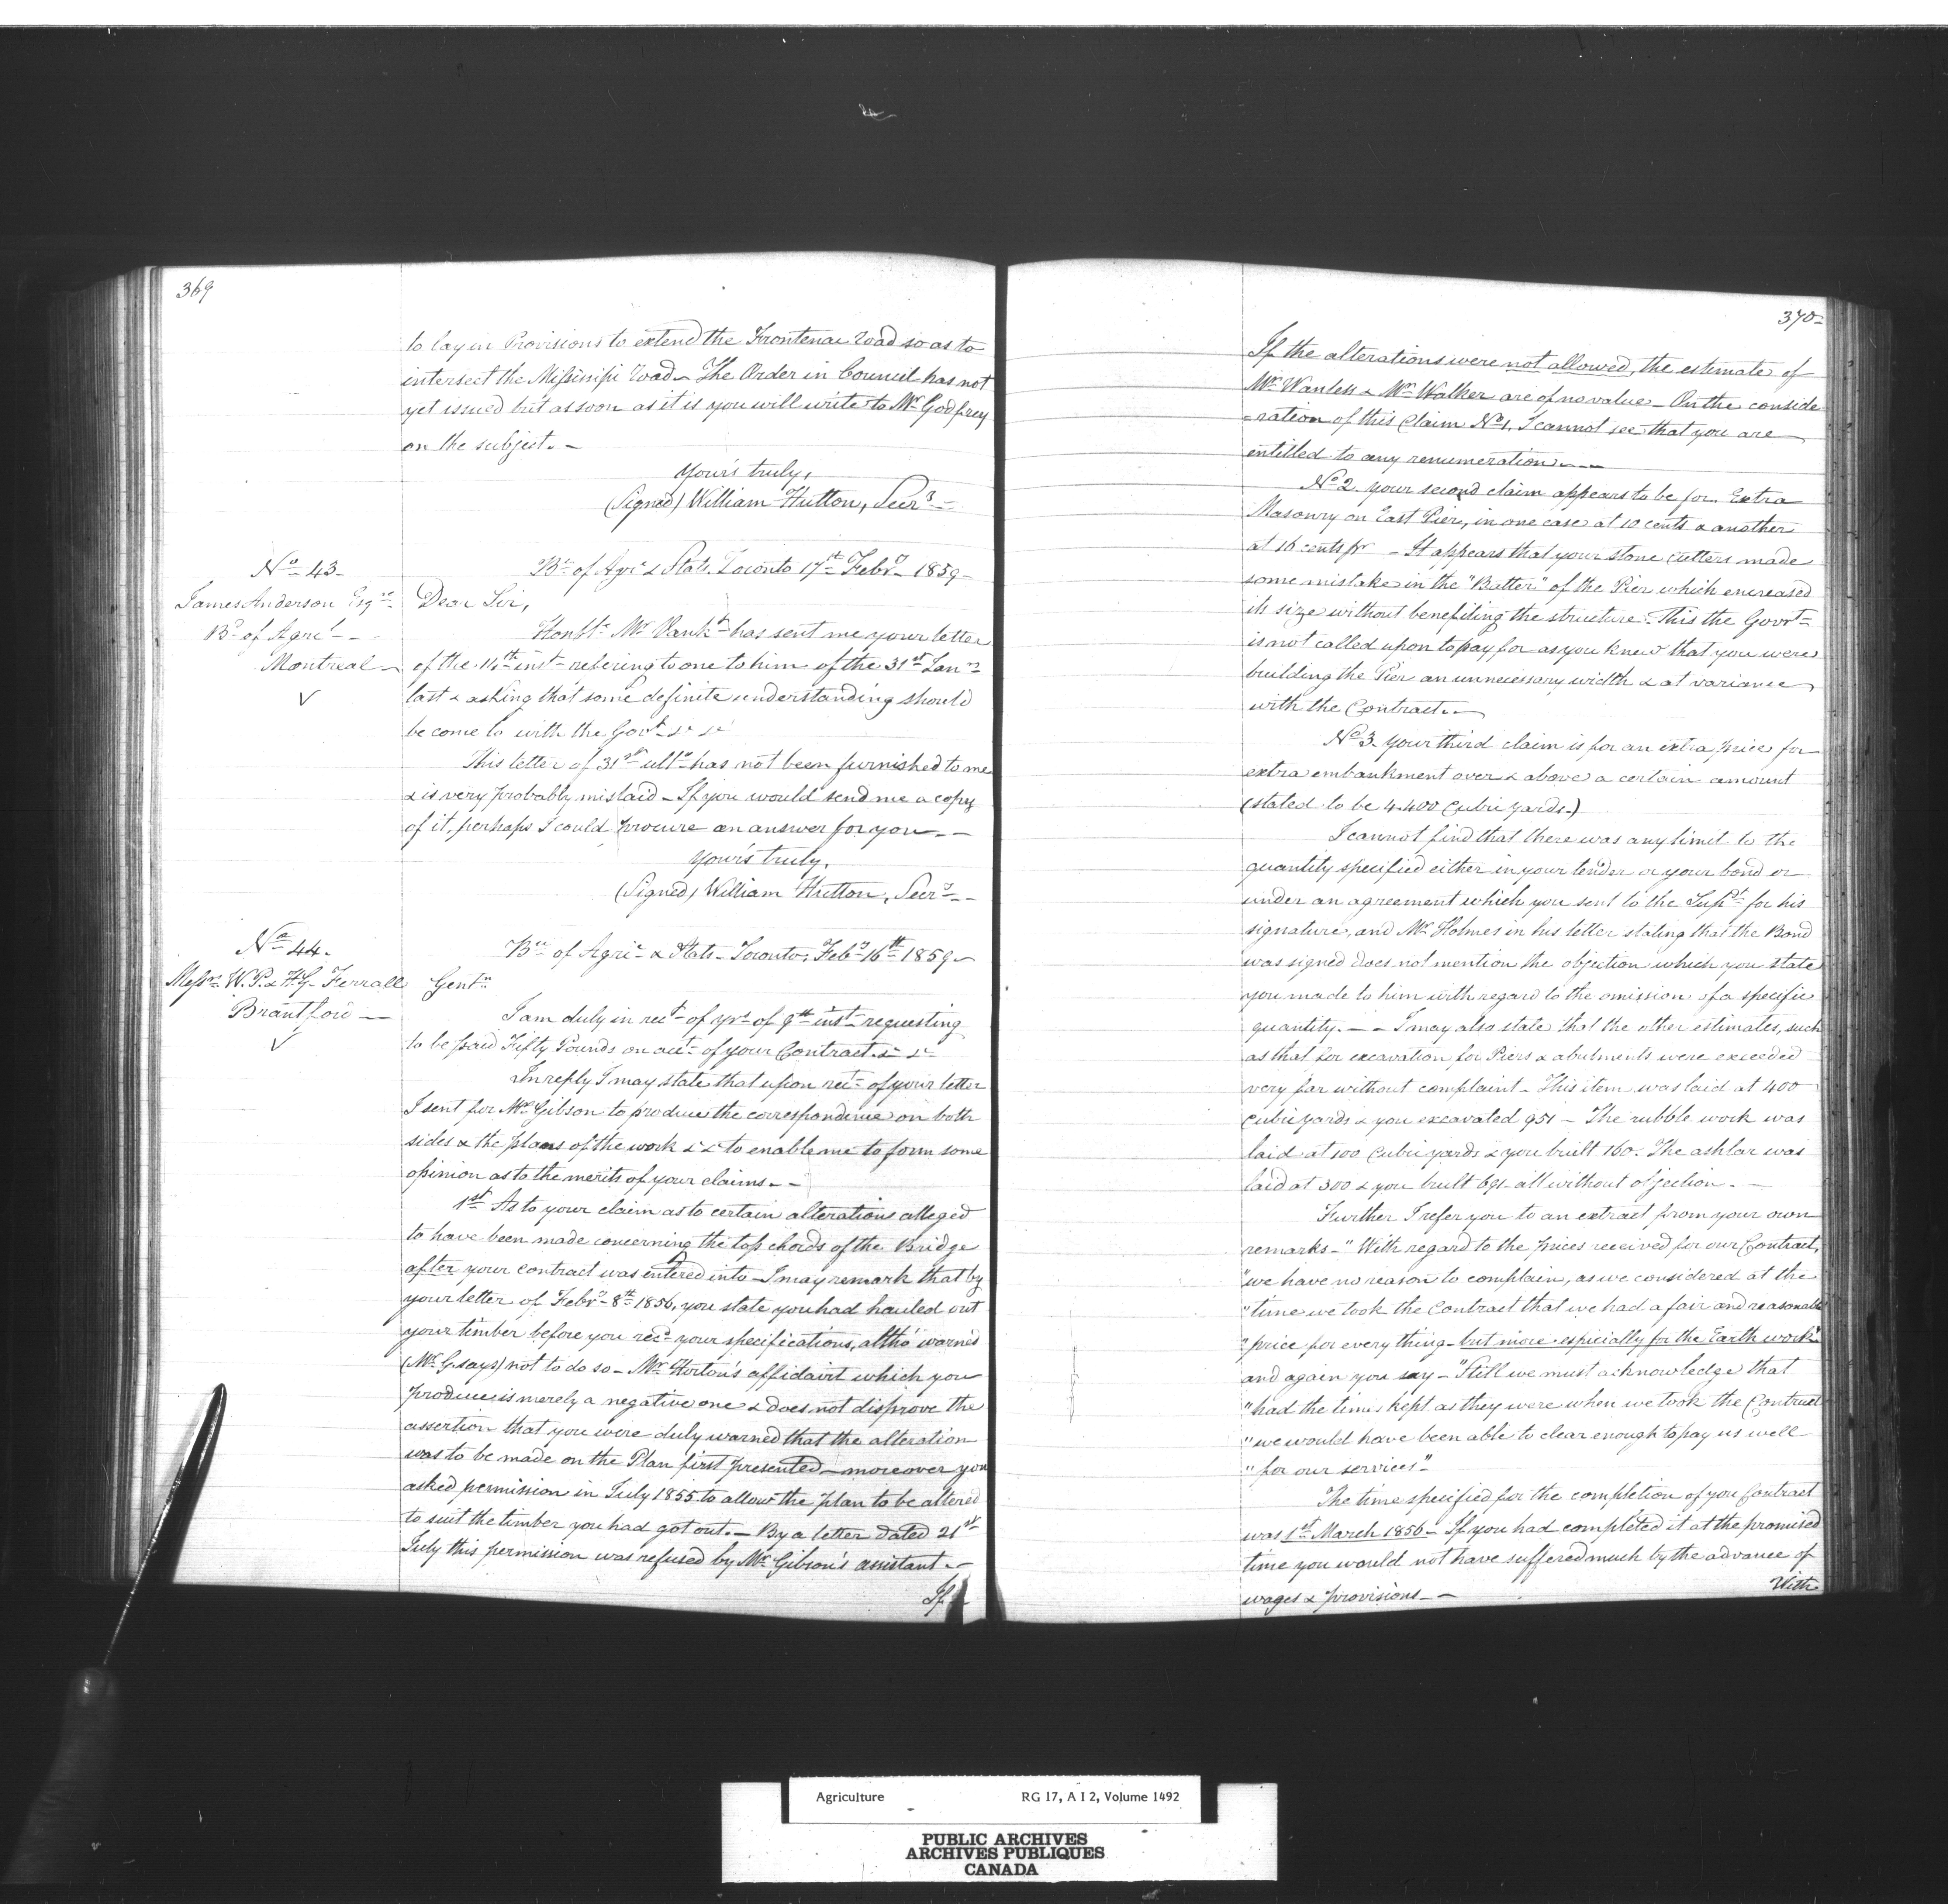 369
to lay in Provisions to extend the Frontenac Road so as to
intersect the Mississipi Road - The Order in Council has not
yet issued but as soon as it is you will write to Mr Godfrey
on the subject. -
Your's truly,
(Signed) William Hutton, Secry -
No 43 -
James Anderson Esqre
Bd of Agrel - -
Montreal -
✓
Bu of Agre & Stats. Toronto 17th Febry 1859 -
Dear Sir,
Honble Mr Vankt has sent me your letter
of the 14th inst - refering to one to him of the 31st Jany
last & asking that some definite understanding should
be come to with the Govt &c &c
This letter of 31st ulto has not been furnished to me
& is very probably mislaid - If you would send me a copy
of it, perhaps I could procure an answer for you. -
Your's truly,
(Signed) William Hutton, Secry - -
No 44.
Messrs W. P. & H. G. Ferrall
Brantford -
✓
Bu of Agric & Stats - Toronto, Feby 16th 1859 -
Gentn
I am duly in rect of yrs of 9th inst - requesting
to be paid Fifty Pounds on acct of your Contract &c &c
In reply I may state that upon rect of your letter
I sent for Mr Gibson to produce the correspondence on both
sides & the plans of the work &c &c to enable me to form some
opinion as to the merits of your claims. - -
1st As to your claim as to certain alterations alleged
to have been made concerning the top chords of the Bridge
after your contract was entered into - I may remark that by
your letter of Febry 8th 1856, you state you had hauled out
your timber before you recd your specifications, altho' warned
(Mr G. says) not to do so - Mr Horton's affidavit which you
produce is merely a negative one & does not disprove the
assertion that you were duly warned that the alteration
was to be made on the Plan first presented - moreover you
asked permission in July 1855 to allow the plan to be altered
to suit the timber you had got out. - By a letter dated 21st
July this permission was refused by Mr Gibson's assistant. -
If -
370 -
If the alterations were not allowed, the estimate of
Mr Wanless & Mr Walker are of no value - On the conside
=ration of this Claim No 1, I cannot see that you are
entitled to any renumeration - -
No 2 your second claim appears to be for Extra
Masonry on East Pier, in one case at 10 cents & another
at 16 cents pr - It appears that your stone cutters made
some mistake in the "Batter" of the Pier which encreased
its size without benefiting the structure. This the Govrt -
is not called upon to pay for as you knew that you were
building the Pier an unnecessary width & at variance
with the Contract. -
No 3 your third claim is for an extra price for
extra embankment over & above a certain amount
(stated to be 4.400 Cubic yards.)
I cannot find that there was any limit to the
quantity specified either in your tender or your bond or
under an agreement which you sent to the Supt for his
signature, and Mr Holmes in his letter stating that the Bond
was signed does not mention the objection which you state
you made to him with regard to the omission of a specific
quantity. - - I may also state that the other estimates, such
as that for excavation for Piers & abutments were exceeded
very far without complaint - This item was laid at 400
Cubic yards & you excavated 951 - The rubble work was
laid at 100 Cubic yards & you built 160. The ashlar was
laid at 300 & you built 691 - all without objection. -
Further I refer you to an extract from your own
remarks - "With regard to the prices received for our Contract,
"we have no reason to complain, as we considered at the
"time we took the Contract that we had a fair and reasonable
"price for every thing - but more especially for the Earth work"
and again you say - "Still we must acknowledge that
"had the times kept as they were when we took the Contract
"we would have been able to clear enough to pay us well
"for our services" -
The time specified for the completion of you Contract
was 1st March 1856 - If you had completed it at the promised
time you would not have suffered much by the advance of
wages & provisions - -
With
Agriculture RG 17, A I 2, Volume 1492
PUBLIC ARCHIVES
ARCHIVES PUBLIQUES
CANADA